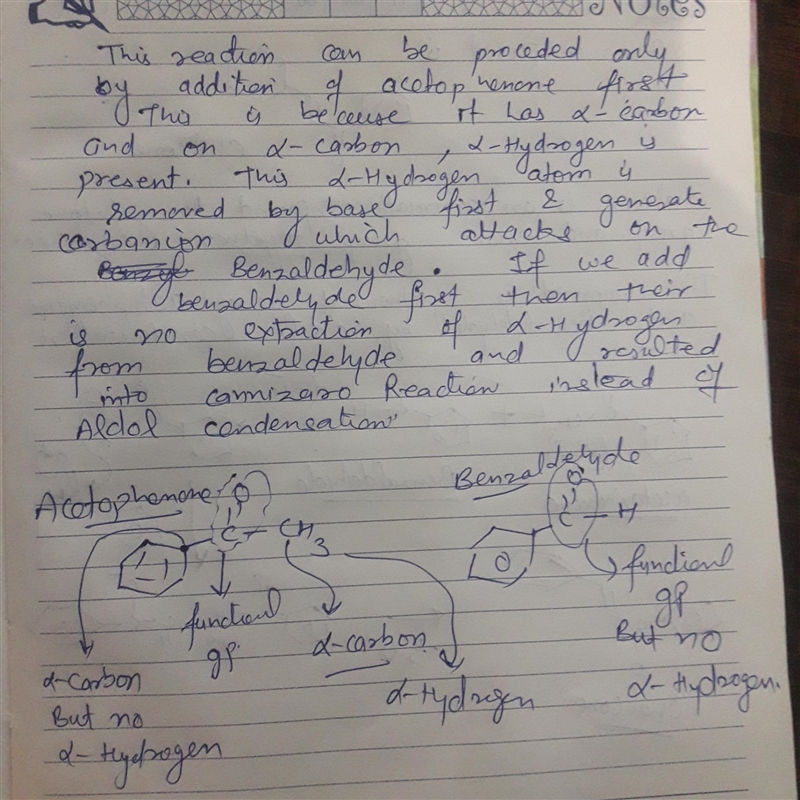 NOTES
This reaction can be proceded only
by addition of acetophenone first
This is because it has α-carbon
and on α-carbon, α-Hydrogen is
present. This α-Hydrogen atom is
removed by base first & generate
carbanion which attacks on the
Benzaldehyde. If we add
benzaldelyde first then their
is no extraction of α-Hydrogen
from benzaldelyde and resulted
into cannizaro Reaction instead of
Aldol condensation.
Benzaldelyde
Acetophenone
O
O
C - CH3
C - H
functional
gp
functional
gp.
α-carbon
But no
α-Hydrogen.
α-carbon
But no
α-Hydrogen
α-Hydrogen